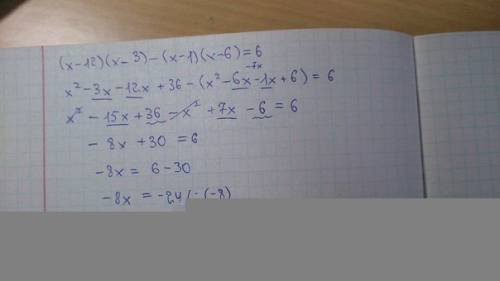 (x-12)(x-3)-(x-1)(x-6)=6
-7x
x²-3x-12x+36-(x²-6x-1x+6)=6
x²-15x+36-x²+7x-6=6
-8x+30=6
-8x=6-30
-8x=-24/:(-8)